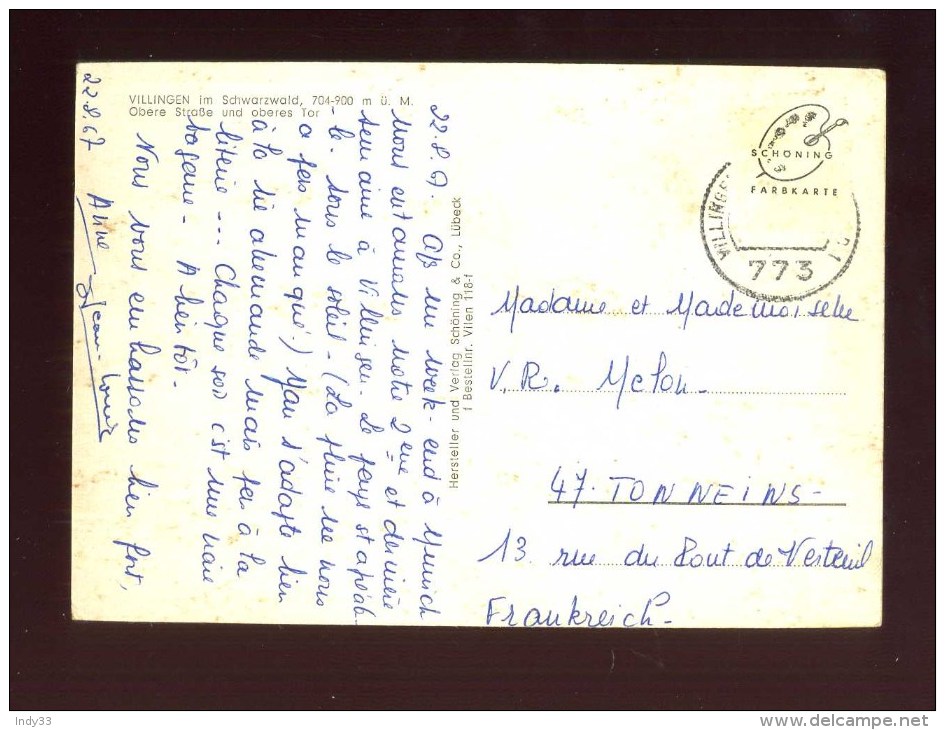 VILLINGEN im Schwarzwald, 704-900 m ü. M.
Obere Straße und oberes Tor
22.8.67. Ap un week-end à Munich
nous entamons notre 2ème et dernière
semaine à Villingen. Le pays est agréab-
-le. sous le soleil - (La pluie ne nous
a pas manqué!) Man s'adapte bien
à la vie allemande mais pas à la
literie --- Chaque soir c'est une vraie
bagarre - A bientôt.
Nous vous embrassons bien fort,
22.8.67 Anne - Jean-Louis
Hersteller und Verlag Schöning & Co., Lübeck
1 Bestellnr. Vilen 118-f
SCHÖNING
FARBKARTE
VILLINGEN
773
Madame et Mademoiselle
V.R. Melon-
47. TONNEINS-
13 rue du Pont de Verteuil
Frankreich-
Indy33
www.delcampe.net